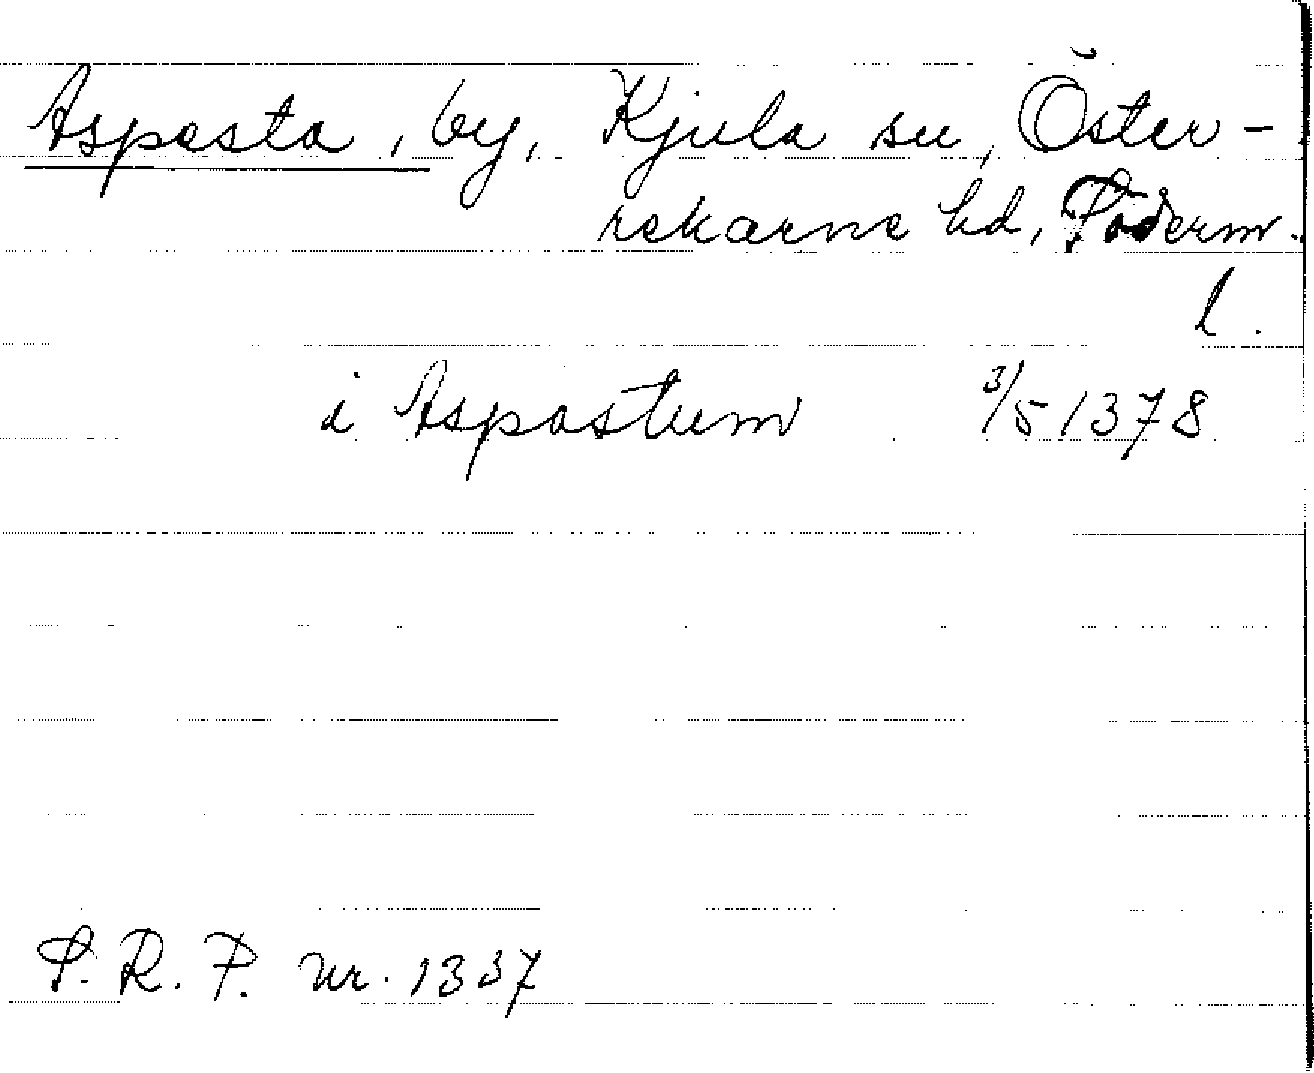 Aspasta, by, Kjula sn, Öster-
rekarne hd, Söderm.
l.
i Aspastum 3/5 1378
S. R. P. nr. 1337